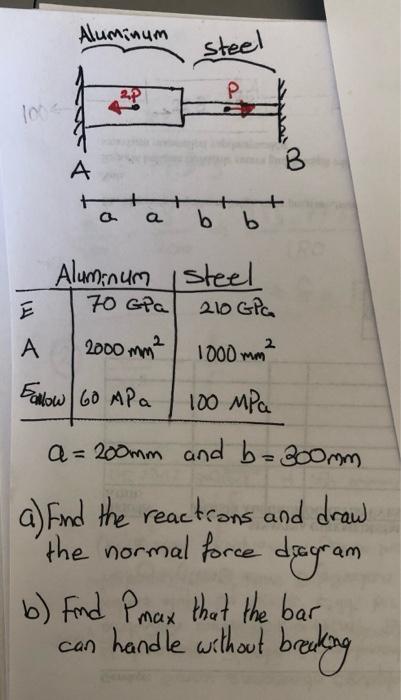 Aluminum
steel
2P
P
100
A
B
a a b b
Aluminum | steel
E 70 GPa 210 GPa
A 2000 mm² 1000 mm²
σallow 60 MPa 100 MPa
a = 200mm and b = 300mm
a) Find the reactions and draw
the normal force diagram
b) Find Pmax that the bar
can handle without breaking